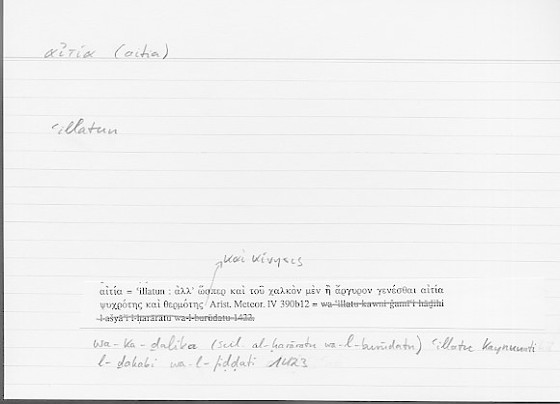 αἰτία (aitia)
ʿillatun
καὶ κίνησις
αἰτία = ʿillatun : ἀλλ᾽ ὥσπερ καὶ τοῦ χαλκὸν μὲν ἢ ἄργυρον γενέσθαι αἰτία
ψυχρότης καὶ θερμότης Arist. Meteor. IV 390b12 = wa-ʿillatu kawni ǧamīʿi hāḏihi
l-ašyāʾi l-ḥarāratu wa-l-burūdatu 1422.
wa-ka-ḏālika (scil. al-ḥarāratu wa-l-burūdatu) ʿillatu kaynūnati
l-ḏahabi wa-l-fiḍḍati 1423